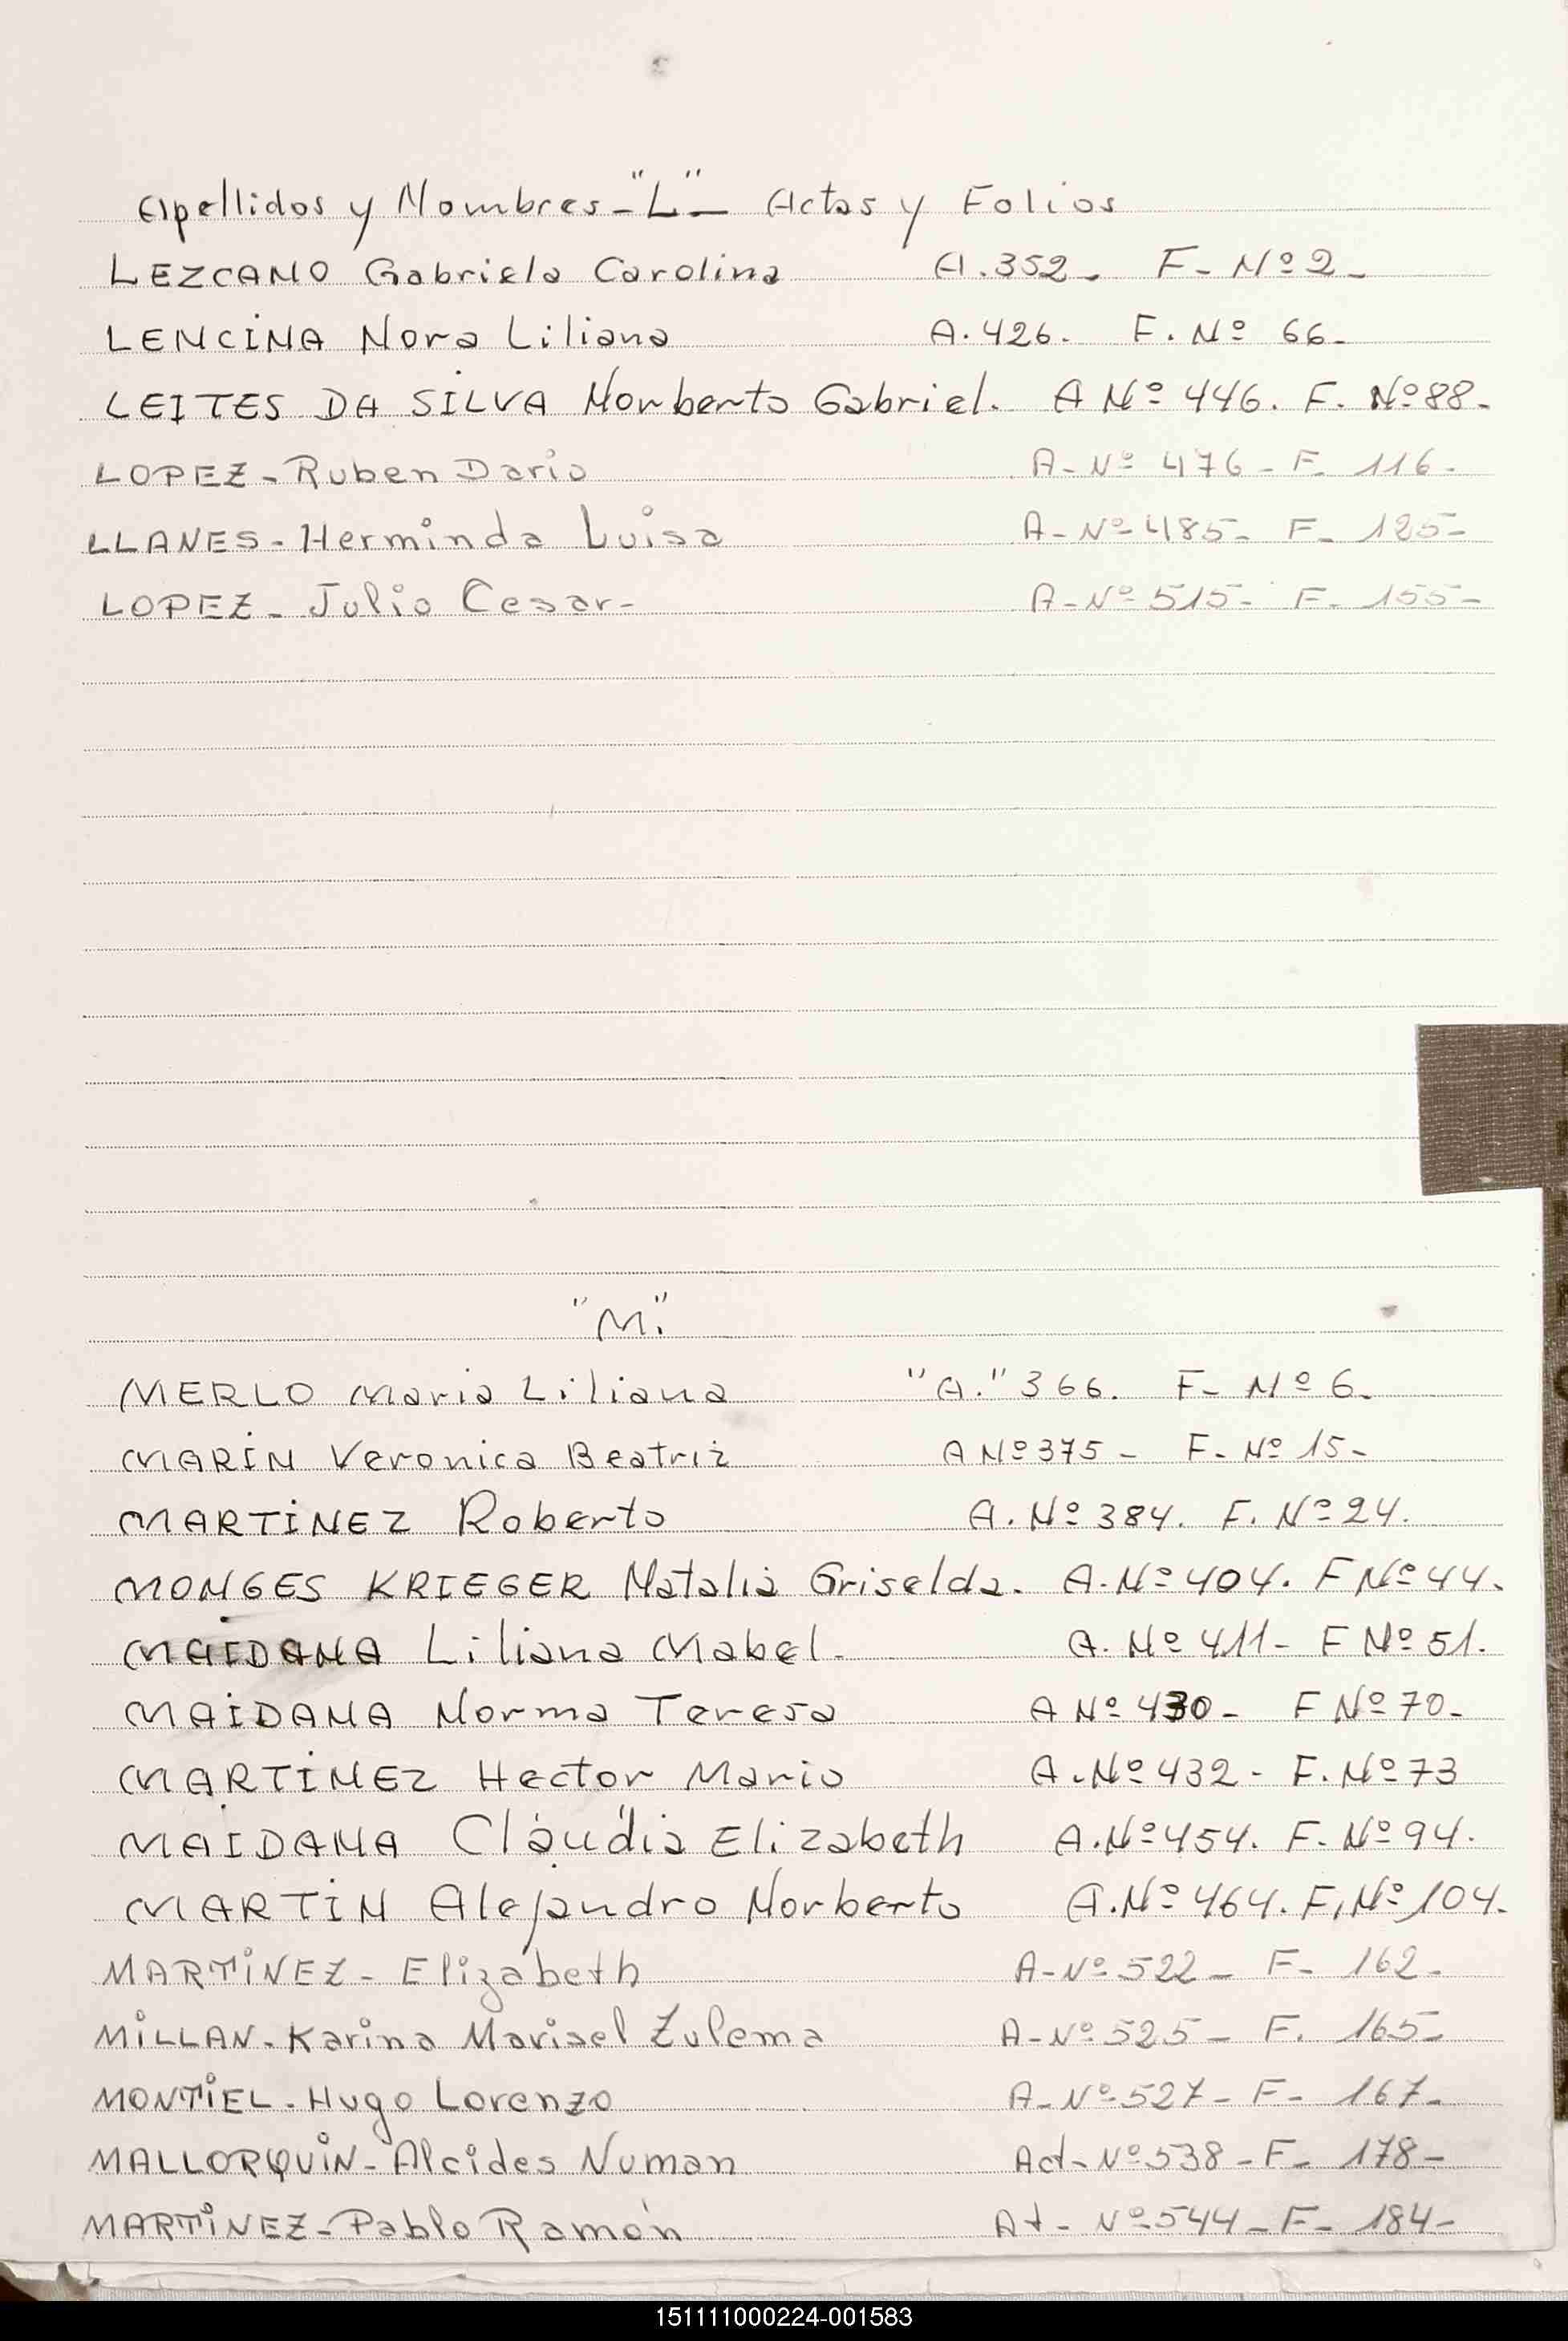 Apellidos y Nombres - "L" - Actas y Folios
LEZCANO Gabriela Carolina A. 352 - F - Nº 2 -
LENCINA Nora Liliana A. 426. F. Nº 66 -
LEITES DA SILVA Norberto Gabriel. A Nº 446. F. Nº 88 -
LOPEZ - Ruben Dario A - Nº 476 - F - 116 -
LLANES - Herminda Luisa A - Nº 485 - F - 125 -
LOPEZ - Julio Cesar - A - Nº 515 - F - 155 -
"M."
MERLO Maria Liliana "A." 366. F - Nº 6 -
MARIN Veronica Beatriz A Nº 375 - F - Nº 15 -
MARTINEZ Roberto A. Nº 384. F. Nº 24.
MONGES KRIEGER Natalia Griselda. A. Nº 404. F Nº 44.
MAIDANA Liliana Mabel. A. Nº 411 - F Nº 51.
MAIDANA Norma Teresa A Nº 430 - F Nº 70 -
MARTINEZ Hector Mario A. Nº 432 - F. Nº 73
MAIDANA Cláudia Elizabeth A. Nº 454. F. Nº 94.
MARTIN Alejandro Norberto A. Nº 464. F. Nº 104.
MARTINEZ - Elizabeth A - Nº 522 - F - 162 -
MILLAN - Karina Marisel Zulema A - Nº 525 - F. 165 -
MONTIEL - Hugo Lorenzo A - Nº 527 - F - 167 -
MALLORQUIN - Alcides Numan Act - Nº 538 - F - 178 -
MARTINEZ - Pablo Ramón At - Nº 544 - F - 184 -
151111000224-001583